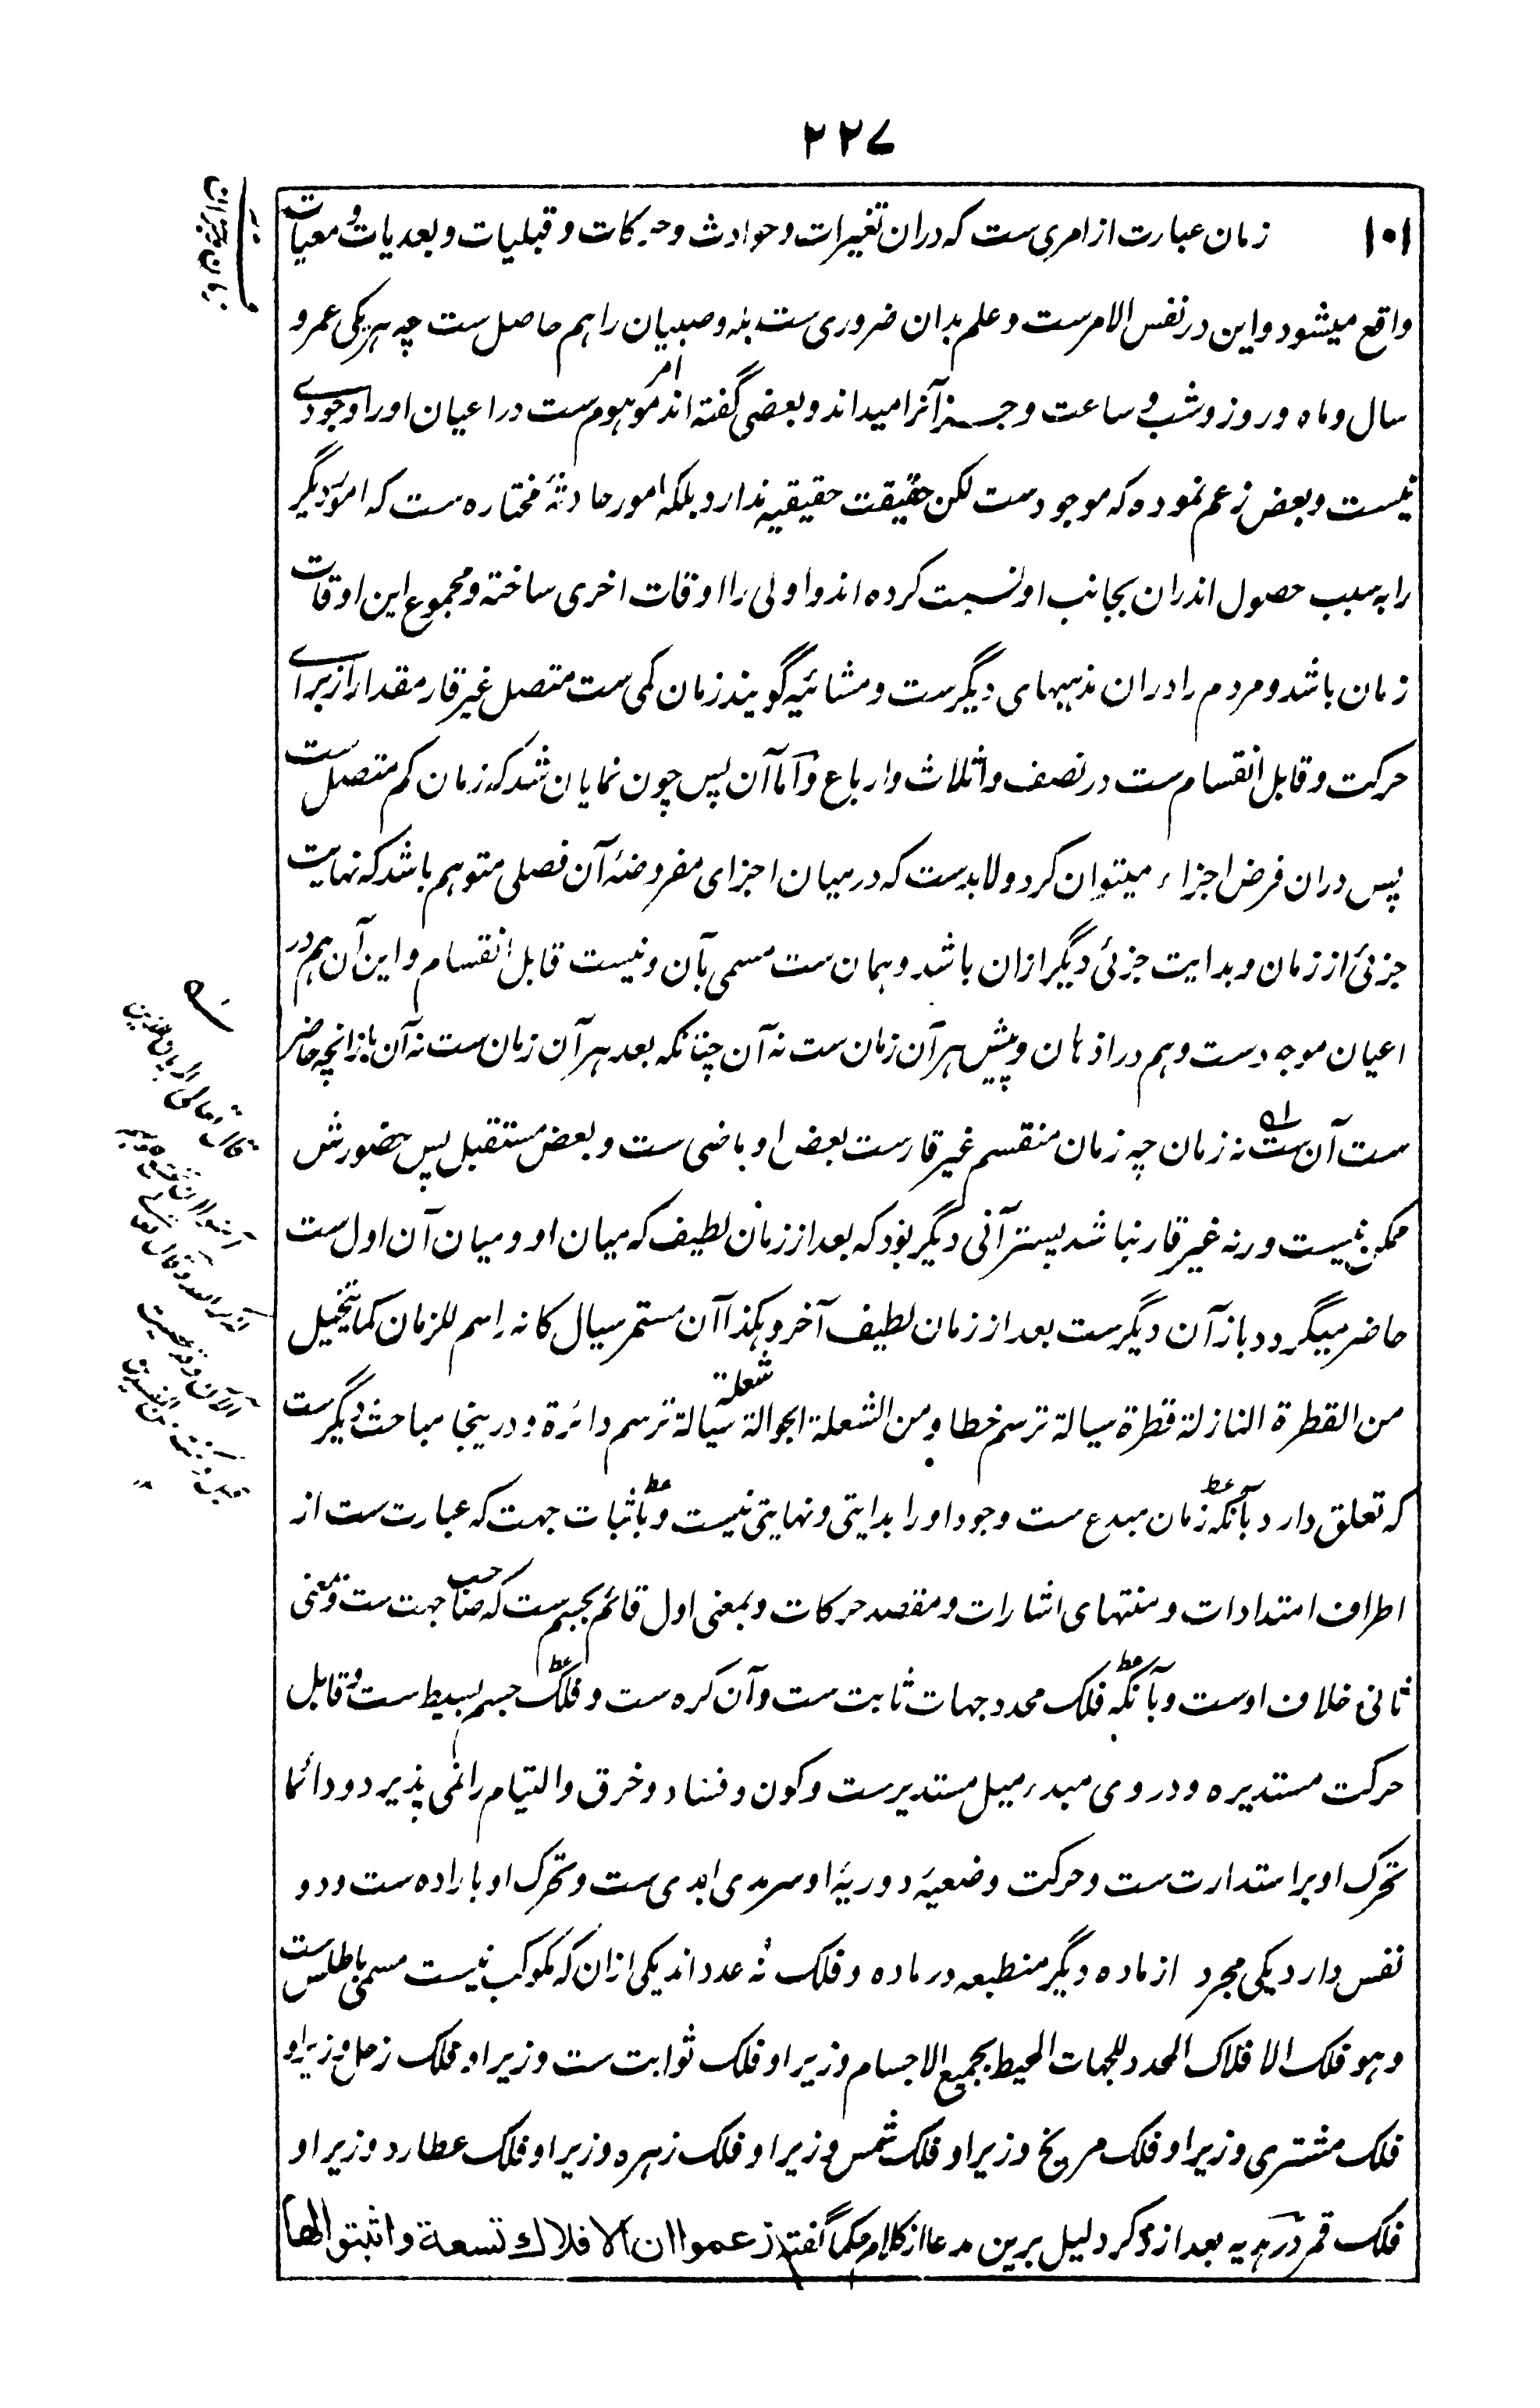 ۲۲۷
۱۰۱ زمان عبارت از امری ست که دران تغیرات و حوادث و حرکات و قبلیات و بعدیات و معیات
واقع میشود و این در نفس الامر ست و علم بدان ضروری ست بله و صبیان را هم حاصل ست چه هر یکی عمر و
سال و ماه و روز و شب و ساعت و جز آنرا میداند و بعضی گفته اند امر موهوم ست در اعیان او را وجودے
نیست و بعض زعم نموده که موجود ست لکن حقیقت حقیقیه ندارد بلکه امور حادثهٔ مختاره ست که امور دیگر
را به سبب حصول اندران بجانب او نسبت کرده اند و اولی را اوقات اخری ساخته و مجموع این اوقات
زمان باشد و مردم را دران مذهبهای دیگر ست و مشائیه گویند زمان کمی ست متصل غیر قار مقدار از براے
حرکت و قابل انقسام ست در نصف و اثلاث و ارباع و اما آن پس چون نمایان شد که زمان کم متصل ست
پس دران فرض اجزاء میتوان کرد و لابد ست که درمیان اجزای مفروضهٔ آن فصلی متوهم باشد که نهایت
جزئی از زمان و بدایت جزئی دیگر ازان باشد و همان ست مسمی بآن و نیست قابل انقسام و این آن هم در
اعیان موجود ست و هم در اذهان و پیش هر آن زمان ست نه آن چنانکه بعد هر آن زمان ست نه آن باز آنچه حاضر
ست آن ست نه زمان چه زمان منقسم غیر قار ست بعض او ماضی ست و بعض مستقبل پس حضورش
ممکن نیست ورنه غیر قار نباشد پستر آنی دیگر بود که بعد از زمان لطیف که میان او و میان آن اول ست
حاضر میگردد باز آن دیگر ست بعد از زمان لطیف آخر و هکذا آن مستمر سیال کانه راسم للزمان کما یتخیل
من القطرة النازلة قطرة سیالة ترسم خطا و من الشعلة الجوالة شعلة سیالة ترسم دائرة و درینجا مباحث دیگر ست
که تعلق دارد بآنکه زمان مبدع ست وجود او را بدایتی و نهایتی نیست و باثبات جهت که عبارت ست از
اطراف امتدادات و منتهای اشارات و مقصد حرکات و بمعنی اول قائم بجسم ست که صاحب جهت ست و بمعنی
ثانی خلاف اوست و بآنکه فلک محدد جهات ثابت ست و آن کره ست و فلک جسم بسیط ست و قابل
حرکت مستدیره و در وی مبدء میل مستدیر ست و کون و فساد و خرق و التیام را نمی پذیرد و دائما
تحرک او بر استدارت ست و حرکت وضعیهٔ دوریهٔ او سرمدی ابدی ست و تحرک او باراده ست و دو
نفس دارد یکی مجرد از ماده دیگر منطبعه در ماده و فلک نه عدد اند یکی ازان که مکوکب نیست مسمی باطلس ست
و هو فلک الافلاک المحدد للجهات المحیط بجمیع الاجسام و زیر او فلک ثوابت ست و زیر او فلک زحل و زیر او
فلک مشتری و زیر او فلک مریخ و زیر او فلک شمس و زیر او فلک زهره و زیر او فلک عطارد و زیر او
فلک قمر در هدیه بعد از ذکر دلیل برین مدعا از کلام حکما گفته زعموا ان الافلاك تسعة و اثبتوا لها